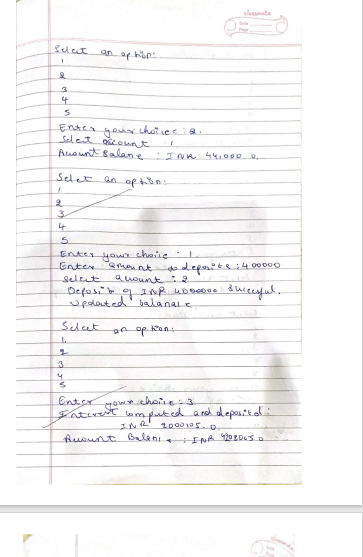 classmate
Date
Page
Select an option:
1
2
3
4
5
Enter your choice: 2.
Select account 1
Account Balance : INR 441000.0.
Select an option:
1
2
3
4
5
Enter your choice : 1.
Enter amount to deposite : 400000
Select account : 2
Deposit of INR 4000000 Successful.
Updated balance
Select an option:
1.
2
3
4
5
Enter your choice : 3.
Interest computed and deposited :
INR 2000105.0
Account Balance : INR